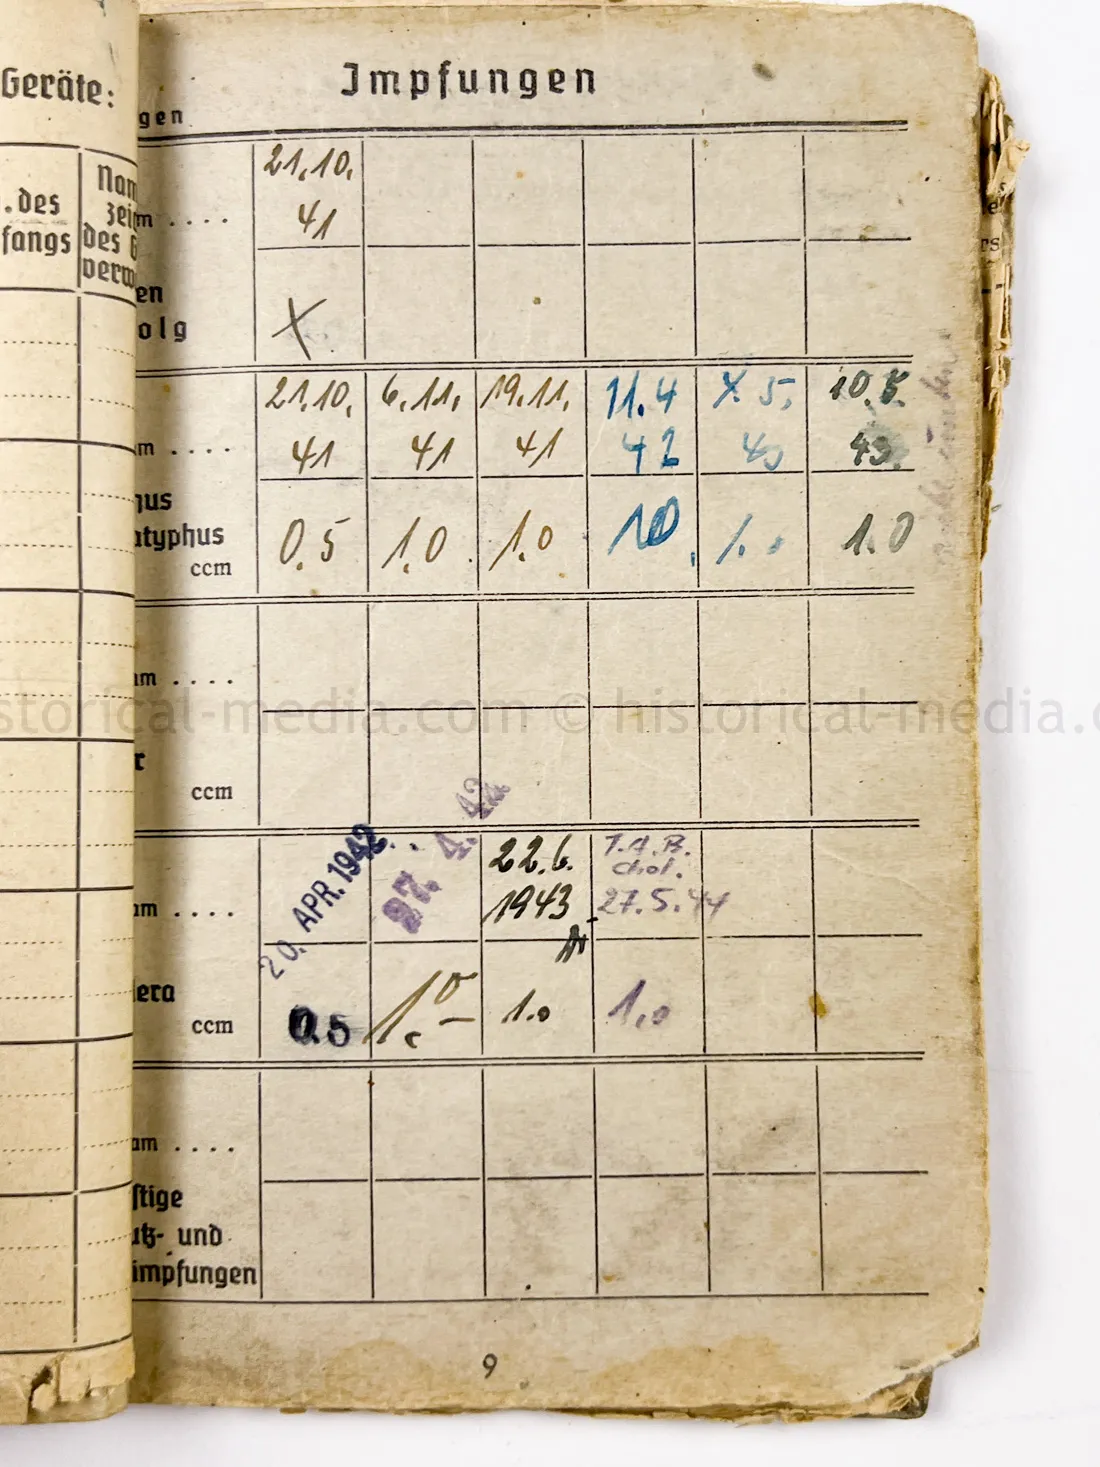 Geräte:
.des
fangs
Nam
zei
des
verw
Impfungen
gen
21.10. 41
m ....
en
olg
X
21.10. 6.11. 19.11. 11.4 5. 10.5.
m .... 41 41 41 42 43.
hus
atyphus
ccm 0.5 1.0 1.0 1.0 1. 1.0
am ....
r
ccm
20. APR. 1942 27. 4. 42 22.6. 1943 T.A.B. Chol. 27.5.44
am ....
era
ccm 0.5 1.0 1.0 1.0
am ....
stige
utz- und
impfungen
9
storical-media.com © historical-media.c